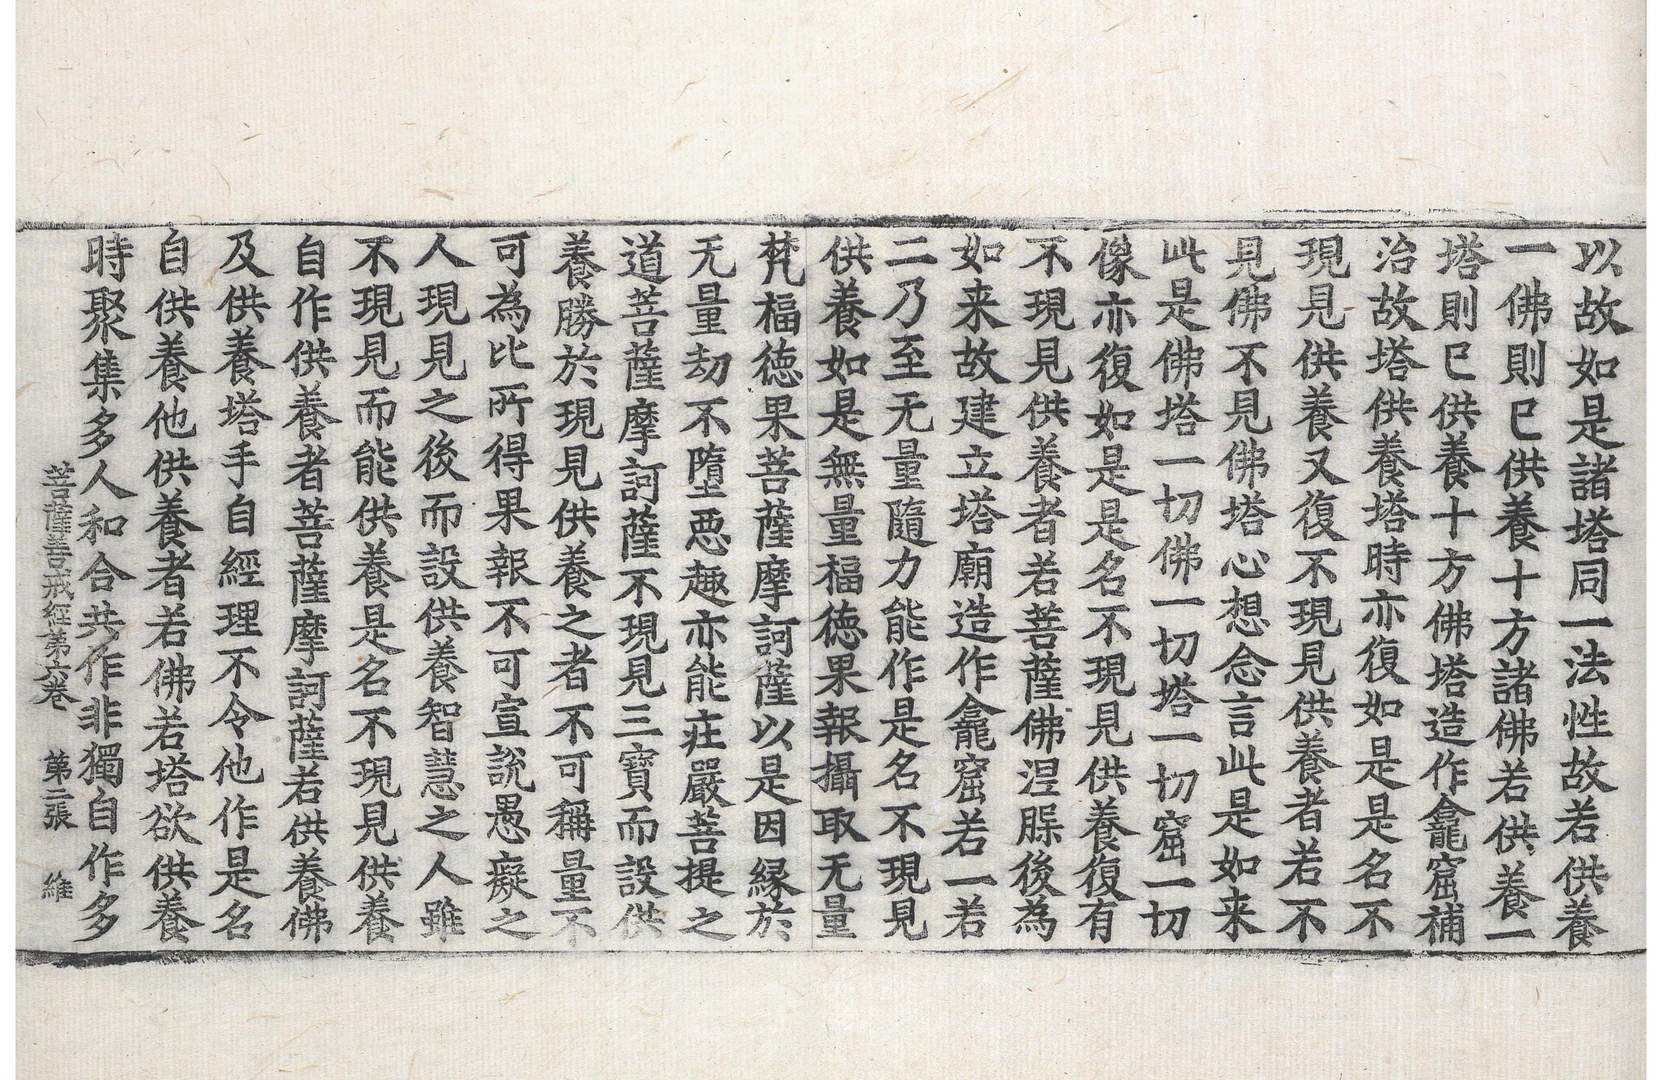 以故如是諸塔同一法性故若供養
一佛則已供養十方諸佛若供養一
塔則已供養十方佛塔造作龕窟補
治故塔供養塔時亦復如是是名不
現見供養又復不現見供養者若不
見佛不見佛塔心想念言此是如来
此是佛塔一切佛一切塔一切窟一切
像亦復如是是名不現見供養復有
不現見供養者若菩薩佛涅槃後為
如来故建立塔廟造作龕窟若一若
二乃至无量隨力能作是名不現見
供養如是無量福徳果報攝取无量
梵福徳果菩薩摩訶薩以是因縁於
无量劫不墮惡趣亦能莊嚴菩提之
道菩薩摩訶薩不現見三寶而設供
養勝於現見供養之者不可稱量不
可為比所得果報不可宣說愚癡之
人現見之後而設供養智慧之人雖
不現見而能供養是名不現見供養
自作供養者菩薩摩訶薩若供養佛
及供養塔手自經理不令他作是名
自供養他供養者若佛若塔欲供養
時聚集多人和合共作非獨自作多
菩薩善戒經第六卷 第二張 維